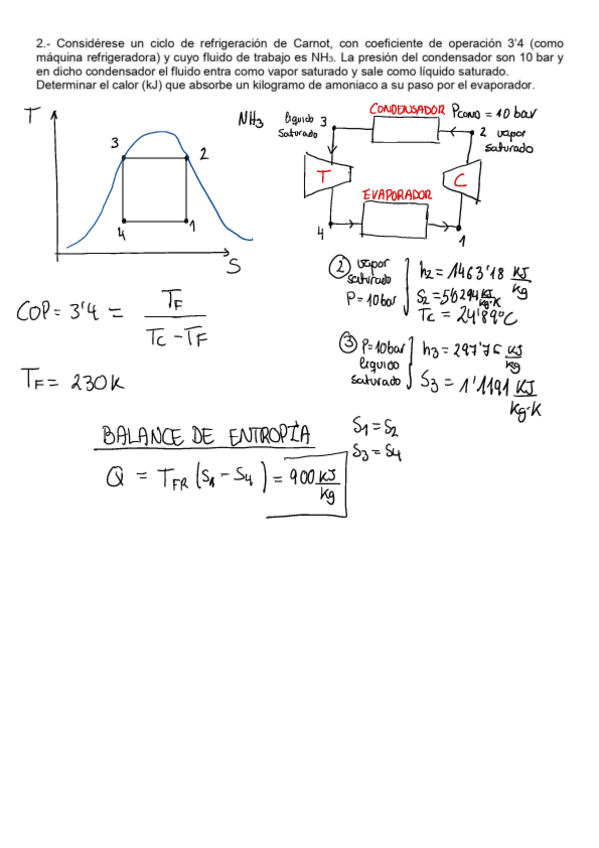 2.- Considérese un ciclo de refrigeración de Carnot, con coeficiente de operación 3'4 (como
máquina refrigeradora) y cuyo fluido de trabajo es NH₃. La presión del condensador son 10 bar y
en dicho condensador el fluido entra como vapor saturado y sale como líquido saturado.
Determinar el calor (kJ) que absorbe un kilogramo de amoniaco a su paso por el evaporador.
T
3
2
4
1
S
NH3
líquido 3
saturado
CONDENSADOR Pcond = 10 bar
2 vapor
saturado
T
C
EVAPORADOR
4
1
② vapor
saturado
P = 10 bar
h2 = 1463'18 kJ/kg
S2 = 5'0294 kJ/kg·K
Tc = 24'89°C
③ P=10bar
líquido
saturado
h3 = 297'76 kJ/kg
S3 = 1'1191 kJ/kg·K
COP = 3'4 = TF / (Tc - TF)
TF = 230K
BALANCE DE ENTROPÍA
S1 = S2
S3 = S4
Q = TFR (S1 - S4) = 900 kJ/kg